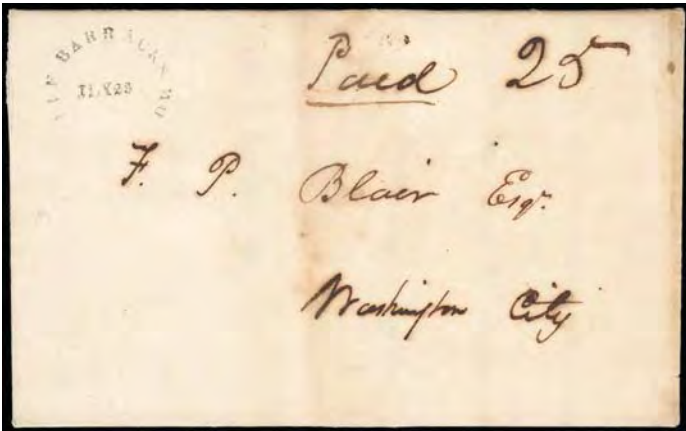 BARRACKS MO
Paid 25
F. P. Blair Esqr.
Washington City